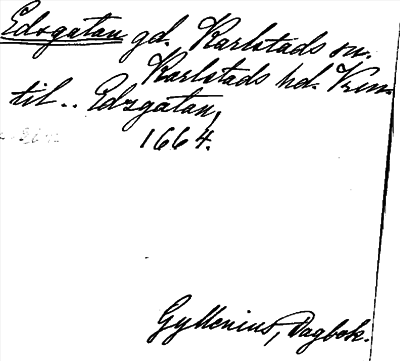 Edsgatan gd. Karlstads sn.
Karlstads hd. Vrm.
til.. Edzgatan,
1664.
Gyllenius, Dagbok.